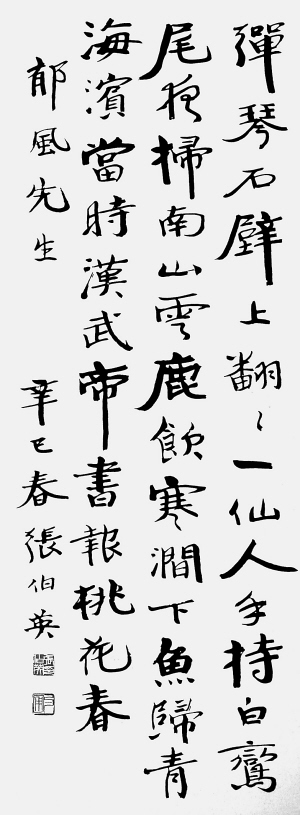 彈琴石壁上翻〻一仙人手持白鸞
尾夜掃南山雲鹿飲寒澗下魚歸青
海濱當時漢武帝書報桃花春
郁風先生 辛巳春張伯英